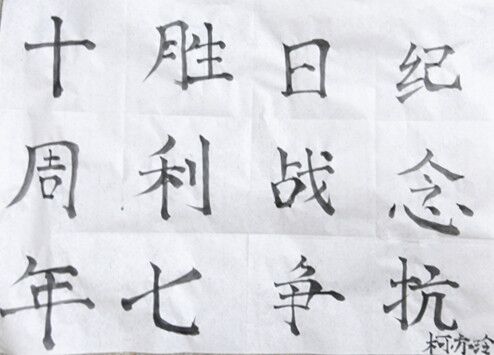 纪念抗
日战争
胜利七
十周年
柯